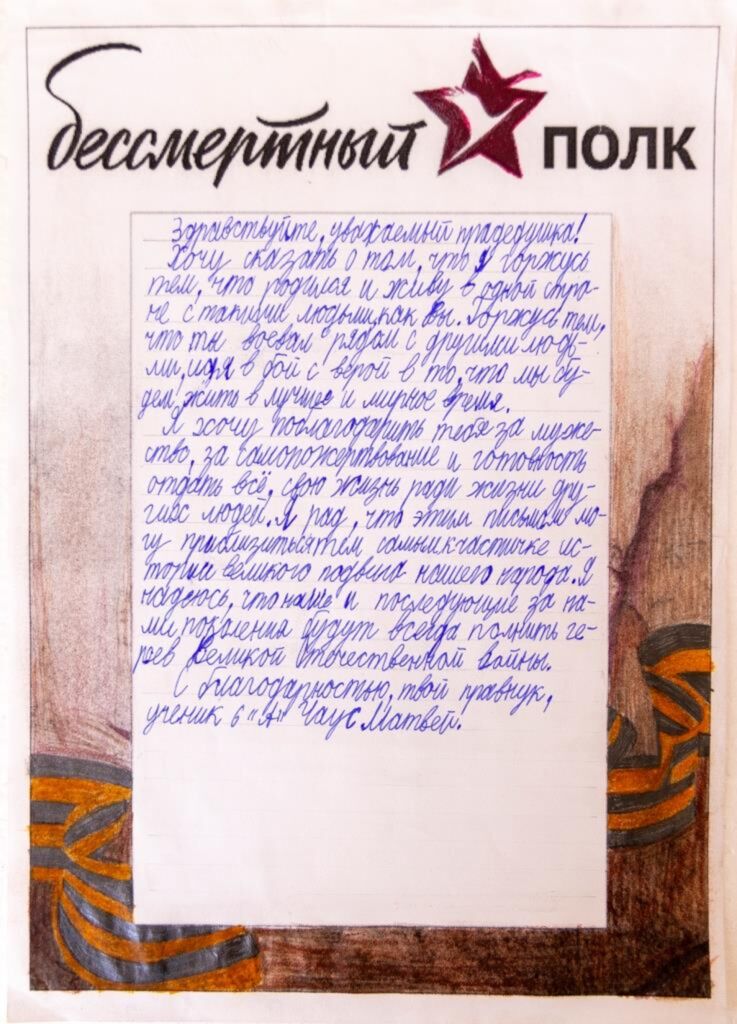 бессмертный полк
Здравствуйте, уважаемый прадедушка!
Хочу сказать о том, что я горжусь
тем, что родился и живу в одной стра-
не с такими людьми, как Вы. Горжусь тем,
что ты воевал рядом с другими людь-
ми, идя в бой с верой в то, что мы бу-
дем жить в лучшее и мирное время.
Я хочу поблагодарить тебя за муже-
ство, за самопожертвование и готовность
отдать всё, свою жизнь ради жизни дру-
гих людей. Я рад, что этим письмом мо-
гу приблизиться тем самым к частичке ис-
тории великого подвига нашего народа. Я
надеюсь, что наше и последующие за на-
ми поколения будут всегда помнить ге-
роев Великой Отечественной войны.
С благодарностью, твой правнук,
ученик 6 "А" Чаус Матвей.